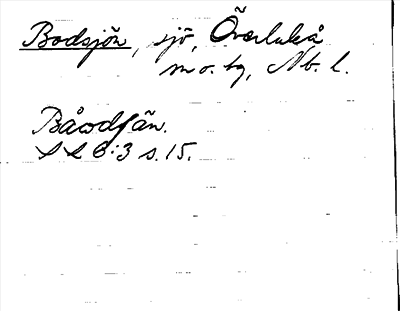 Bodsjön, sjö, Överluleå
m o. tg, Nb. l.
Båωdſän.
S L 6:3 s. 15.